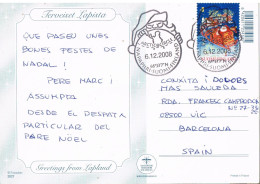 Terveiset Lapista
QUE PASEU UNES
BONES FESTES DE
NADAL!
PERE MARC I
ASSUMPTA
DESDE EL DESPATX
PARTICULAR DEL
PARE NOEL
6.12.2008
6.12.2008
CONXITA I DOLORS
MAS SAULEDA
RDA. FRANCESC CAMPRODON
08500 VIC
BARCELONA
SPAIN
Greetings from Lapland